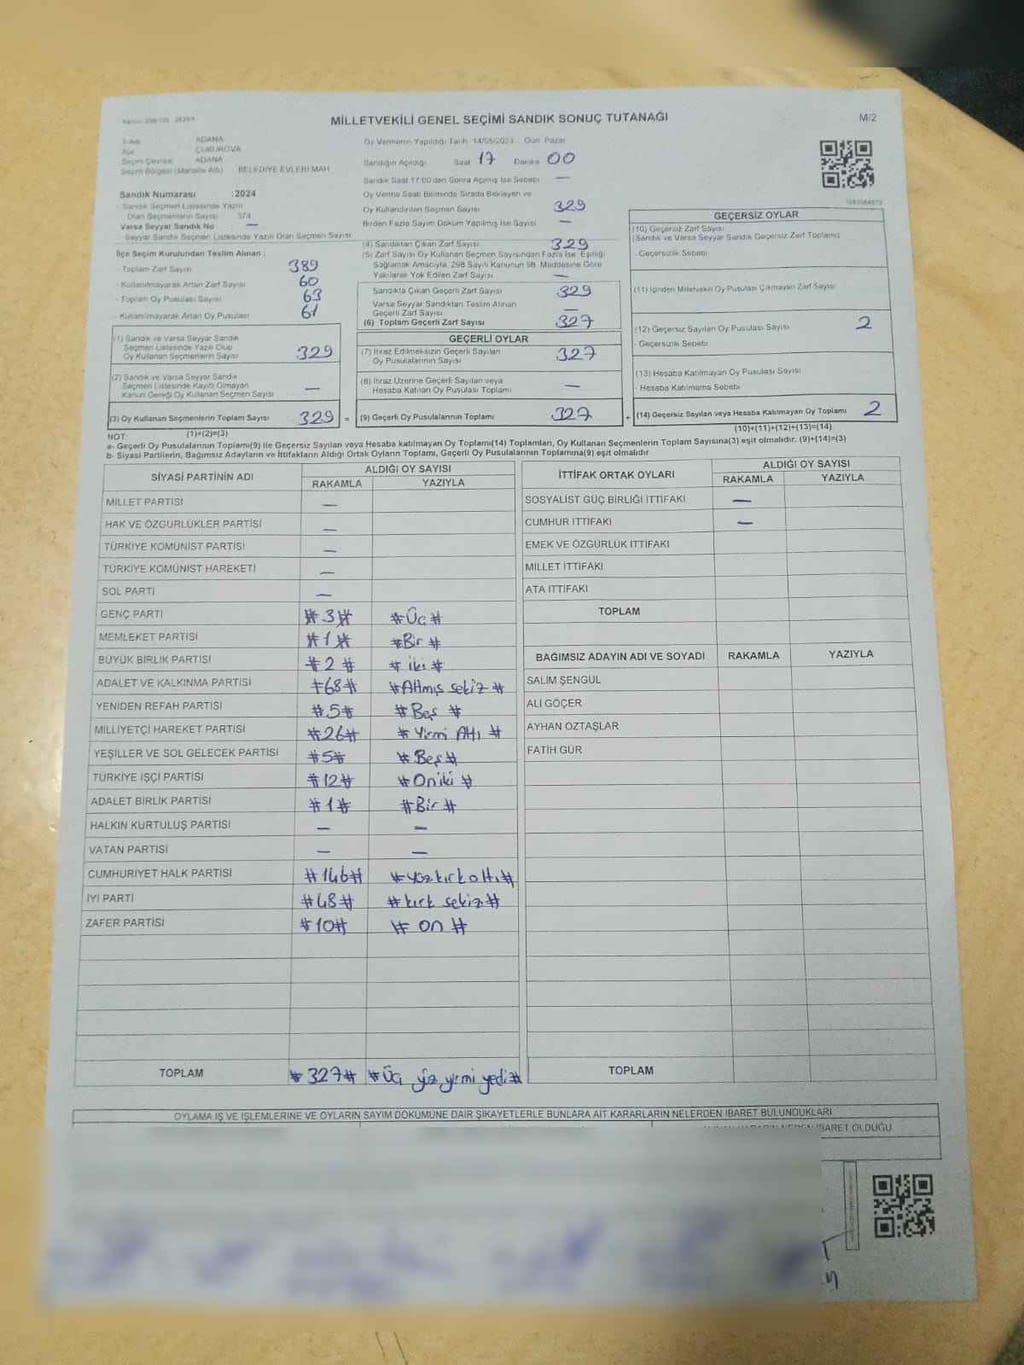 MİLLETVEKİLİ GENEL SEÇİMİ SANDIK SONUÇ TUTANAĞI
M/2
ADANA
ÇUKUROVA
ADANA
Seçim Bölgesi (Mahalle Adı) BELEDİYE EVLERİ MAH
Sandık Numarası : 2024
Sandık Seçmen Listesinde Yazılı
Olan Seçmenlerin Sayısı 374
Varsa Seyyar Sandık No —
Seyyar Sandık Seçmen Listesinde Yazılı Olan Seçmen Sayısı
İlçe Seçim Kurulundan Teslim Alınan :
- Toplam Zarf Sayısı 389
- Kullanılmayarak Artan Zarf Sayısı 60
- Toplam Oy Pusulası Sayısı 63
- Kullanılmayarak Artan Oy Pusulası 61
(1) Sandık ve Varsa Seyyar Sandık
Seçmen Listesinde Yazılı Olup
Oy Kullanan Seçmenlerin Sayısı 329
(2) Sandık ve Varsa Seyyar Sandık
Seçmen Listesinde Kayıtlı Olmayan
Kanun Gereği Oy Kullanan Seçmen Sayısı —
(3) Oy Kullanan Seçmenlerin Toplam Sayısı 329 =
Oy Vermenin Yapıldığı Tarih 14/05/2023 Gün Pazar
Sandığın Açıldığı Saat 17 Dakika 00
Sandık Saat 17:00'dan Sonra Açılmış İse Sebebi —
Oy Verme Saati Bitiminde Sırada Bekleyen ve
Oy Kullandırılan Seçmen Sayısı 329
Birden Fazla Sayım Döküm Yapılmış İse Sayısı —
(4) Sandıktan Çıkan Zarf Sayısı 329
(5) Zarf Sayısı Oy Kullanan Seçmen Sayısından Fazla İse, Eşitliği
Sağlamak Amacıyla, 298 Sayılı Kanunun 98. Maddesine Göre
Yakılarak Yok Edilen Zarf Sayısı —
Sandıkta Çıkan Geçerli Zarf Sayısı 329
Varsa Seyyar Sandıktan Teslim Alınan
Geçerli Zarf Sayısı —
(6) Toplam Geçerli Zarf Sayısı 327
GEÇERLİ OYLAR
(7) İtiraz Edilmeksizin Geçerli Sayılan
Oy Pusulalarının Sayısı 327
(8) İtiraz Üzerine Geçerli Sayılan veya
Hesaba Katılan Oy Pusulası Toplamı —
(9) Geçerli Oy Pusulalarının Toplamı 327 +
GEÇERSİZ OYLAR
(10) Geçersiz Zarf Sayısı
(Sandık ve Varsa Seyyar Sandık Geçersiz Zarf Toplamı)
- Geçersizlik Sebebi
(11) İçinden Milletvekili Oy Pusulası Çıkmayan Zarf Sayısı
(12) Geçersiz Sayılan Oy Pusulası Sayısı 2
- Geçersizlik Sebebi
(13) Hesaba Katılmayan Oy Pusulası Sayısı
- Hesaba Katılmama Sebebi
(14) Geçersiz Sayılan veya Hesaba Katılmayan Oy Toplamı 2
NOT: (1)+(2)=(3) (10)+(11)+(12)+(13)=(14)
a- Geçerli Oy Pusulalarının Toplamı(9) ile Geçersiz Sayılan veya Hesaba katılmayan Oy Toplamı(14) Toplamları, Oy Kullanan Seçmenlerin Toplam Sayısına(3) eşit olmalıdır. (9)+(14)=(3)
b- Siyasi Partilerin, Bağımsız Adayların ve İttifakların Aldığı Ortak Oyların Toplamı, Geçerli Oy Pusulalarının Toplamına(9) eşit olmalıdır
SİYASİ PARTİNİN ADI ALDIĞI OY SAYISI
RAKAMLA YAZIYLA
MİLLET PARTİSİ —
HAK VE ÖZGÜRLÜKLER PARTİSİ —
TÜRKİYE KOMÜNİST PARTİSİ —
TÜRKİYE KOMÜNİST HAREKETİ —
SOL PARTİ —
GENÇ PARTİ #3# #Üç#
MEMLEKET PARTİSİ #1# #Bir#
BÜYÜK BİRLİK PARTİSİ #2# #iki#
ADALET VE KALKINMA PARTİSİ #68# #Altmış sekiz#
YENİDEN REFAH PARTİSİ #5# #Beş#
MİLLİYETÇİ HAREKET PARTİSİ #26# #Yirmi Altı#
YEŞİLLER VE SOL GELECEK PARTİSİ #5# #Beş#
TÜRKİYE İŞÇİ PARTİSİ #12# #On iki#
ADALET BİRLİK PARTİSİ #1# #Bir#
HALKIN KURTULUŞ PARTİSİ — —
VATAN PARTİSİ — —
CUMHURİYET HALK PARTİSİ #146# #yüzkırkaltı#
İYİ PARTİ #48# #kırk sekiz#
ZAFER PARTİSİ #10# #on#
TOPLAM #327# #Üç yüz yirmi yedi#
İTTİFAK ORTAK OYLARI ALDIĞI OY SAYISI
RAKAMLA YAZIYLA
SOSYALİST GÜÇ BİRLİĞİ İTTİFAKI —
CUMHUR İTTİFAKI —
EMEK VE ÖZGÜRLÜK İTTİFAKI
MİLLET İTTİFAKI
ATA İTTİFAKI
TOPLAM
BAĞIMSIZ ADAYIN ADI VE SOYADI RAKAMLA YAZIYLA
SALİM ŞENGÜL
ALİ GÖÇER
AYHAN ÖZTAŞLAR
FATİH GÜR
TOPLAM
OYLAMA İŞ VE İŞLEMLERİNE VE OYLARIN SAYIM DÖKÜMÜNE DAİR ŞİKAYETLERLE BUNLARA AİT KARARLARIN NELERDEN İBARET BULUNDUKLARI
İBARET OLDUĞU